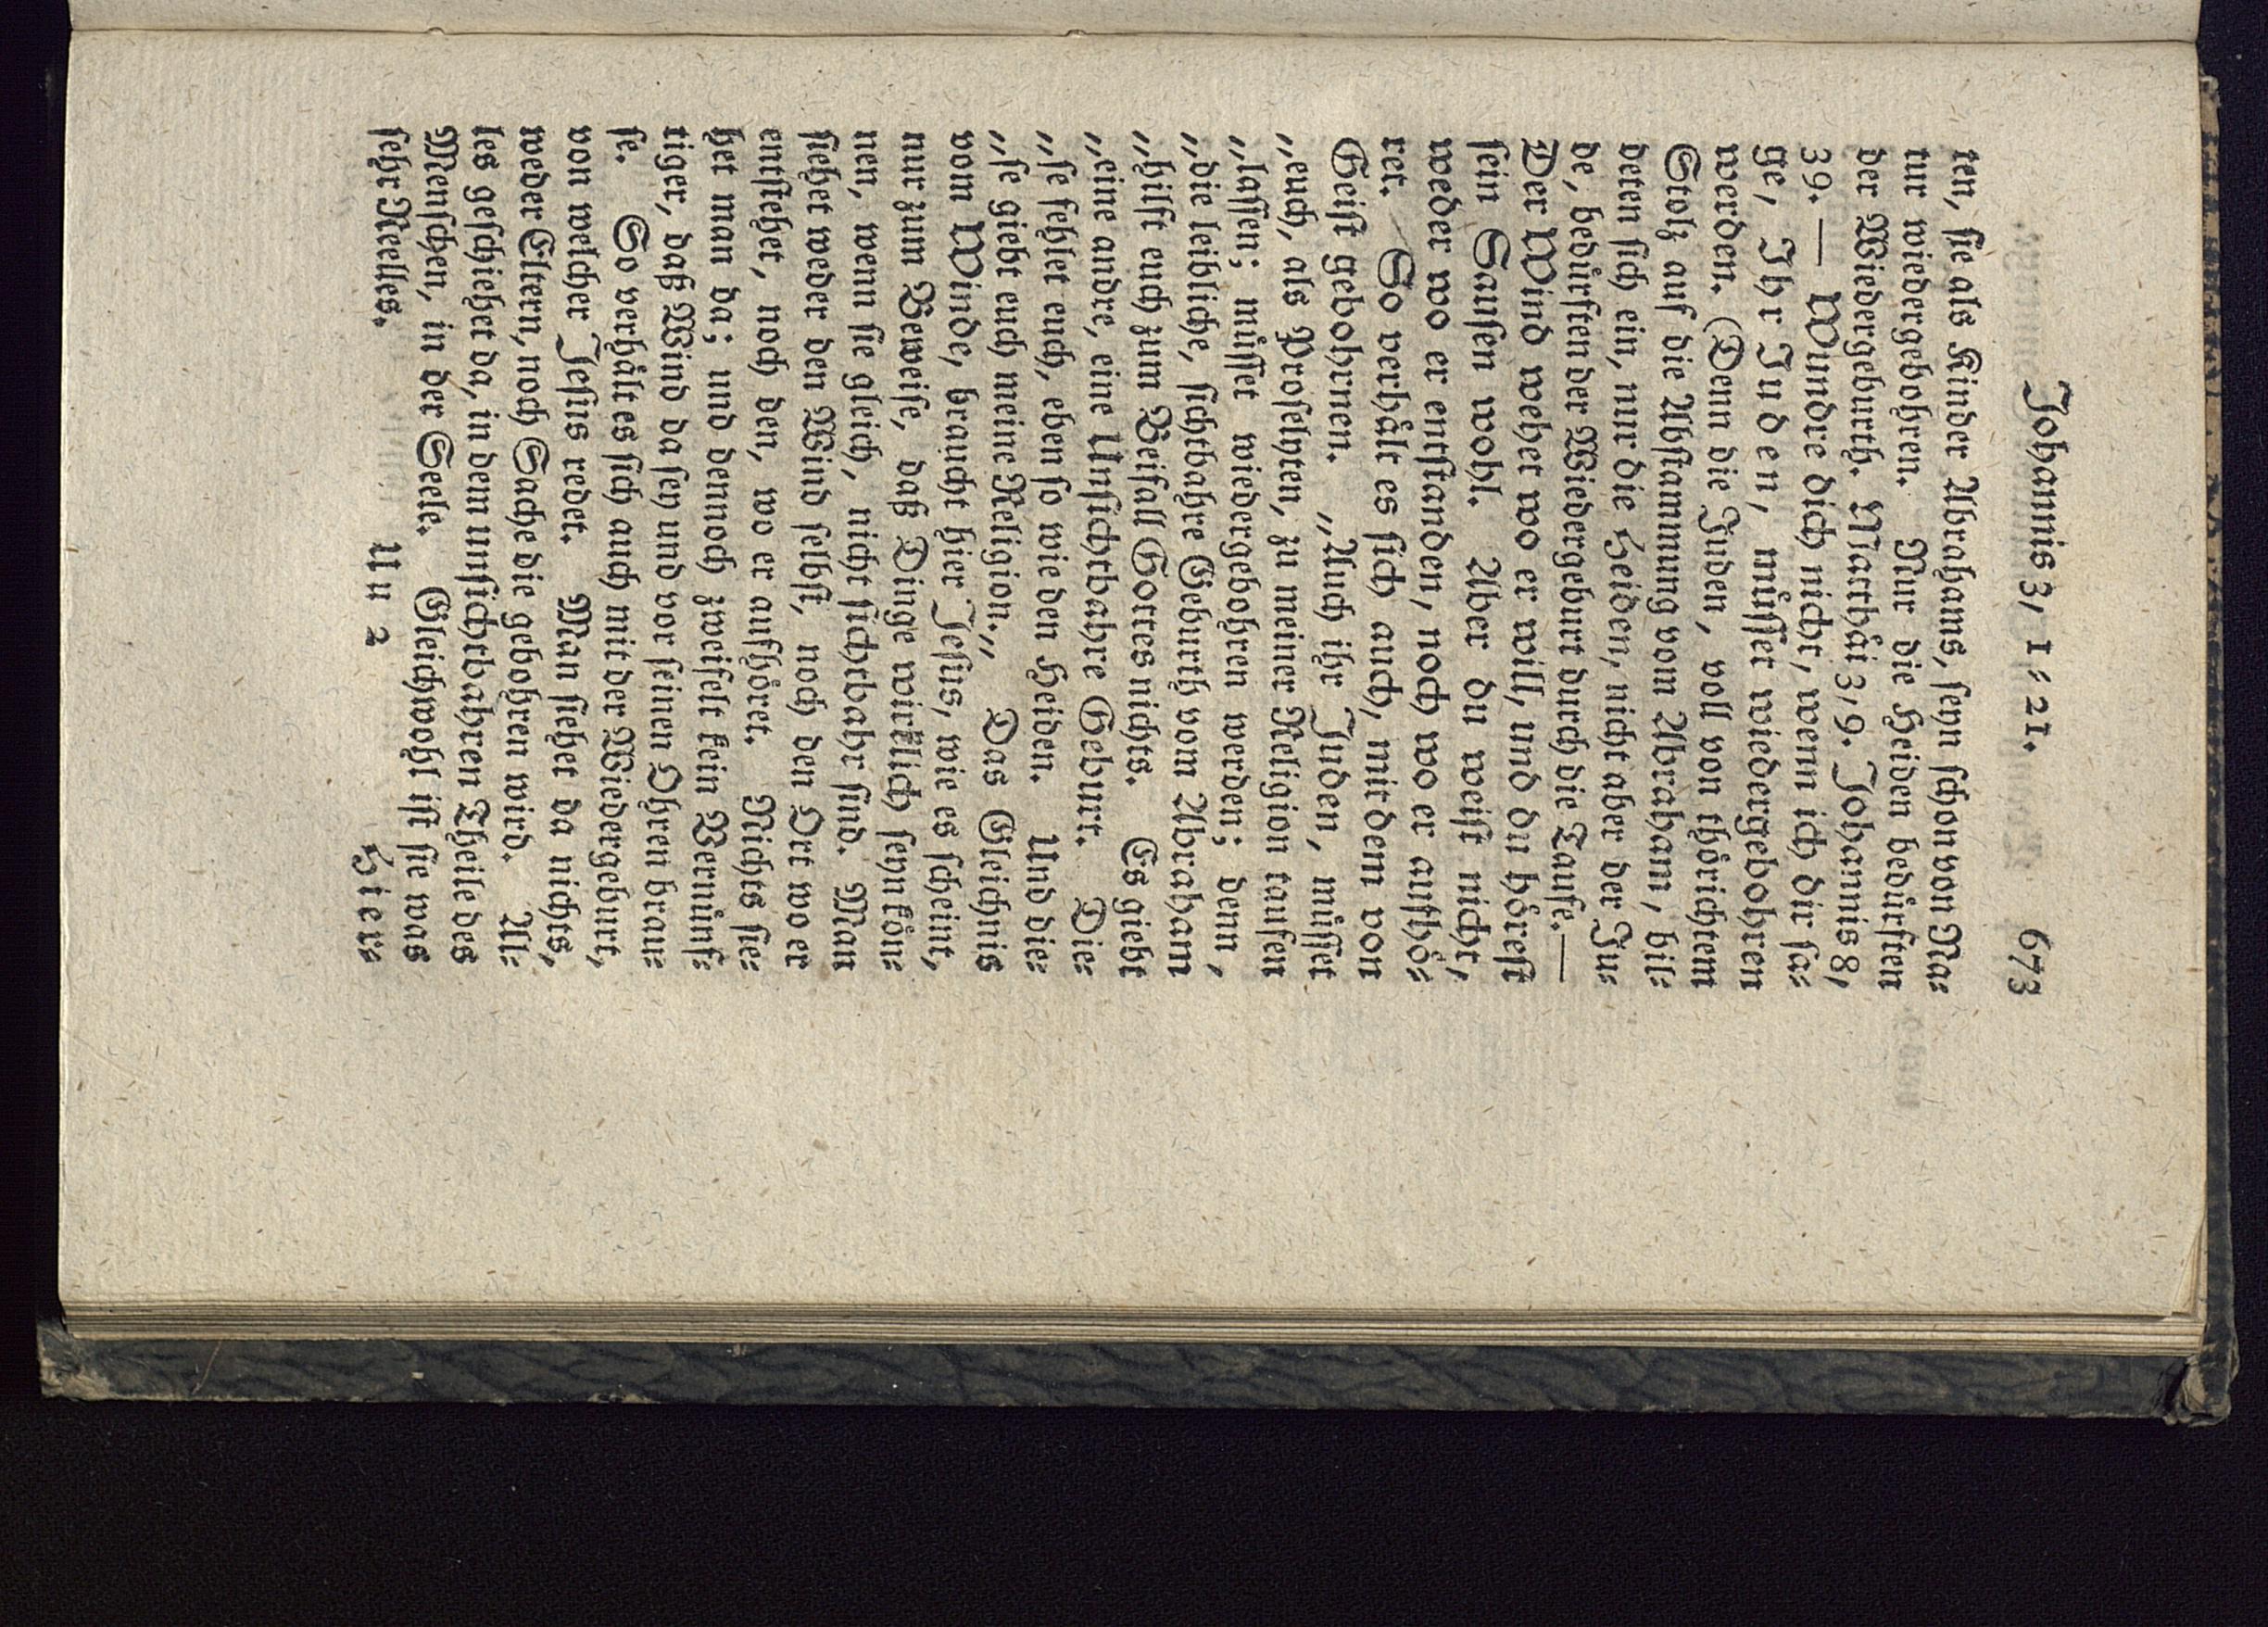 Johannis 3, 1⸗21. 673
ten, ſie als Kinder Abrahams, ſeyn ſchon von Na⸗
tur wiedergebohren. Nur die Heiden bedürften
der Wiedergeburth. Matthäi 3, 9. Johannis 8,
39. — Wundre dich nicht, wenn ich dir ſa⸗
ge, Ihr Juden, müſſet wiedergebohren
werden. (Denn die Juden, voll von thörichtem
Stolz auf die Abſtammung vom Abraham, bil⸗
deten ſich ein, nur die Heiden, nicht aber der Ju⸗
de, bedürften der Wiedergeburt durch die Taufe. —
Der Wind wehet wo er will, und du höreſt
ſein Sauſen wohl. Aber du weiſt nicht,
weder wo er entſtanden, noch wo er aufhö⸗
ret. So verhält es ſich auch, mit dem von
Geiſt gebohrnen. „Auch ihr Juden, müſſet
„euch, als Proſelyten, zu meiner Religion taufen
„laſſen; müſſet wiedergebohren werden; denn,
„die leibliche, ſichtbahre Geburth vom Abraham
„hilft euch zum Beifall Gottes nichts. Es giebt
„eine andre, eine Unſichtbahre Geburt. Die⸗
„ſe fehlet euch, eben ſo wie den Heiden. Und die⸗
„ſe giebt euch meine Religion.„ Das Gleichnis
vom Winde, braucht hier Jeſus, wie es ſcheint,
nur zum Beweiſe, daß Dinge wirklich ſeyn kön⸗
nen, wenn ſie gleich, nicht ſichtbahr ſind. Man
ſiehet weder den Wind ſelbſt, noch den Ort wo er
entſtehet, noch den, wo er aufhöret. Nichts ſie⸗
het man da; und dennoch zweifelt kein Vernünf⸗
tiger, daß Wind da ſey und vor ſeinen Ohren brau⸗
ſe. So verhält es ſich auch mit der Wiedergeburt,
von welcher Jeſus redet. Man ſiehet da nichts,
weder Eltern, noch Sache die gebohren wird. Al⸗
les geſchiehet da, in dem unſichtbahren Theile des
Menſchen, in der Seele. Gleichwohl iſt ſie was
ſehr Reelles.
Uu 2 Hier⸗